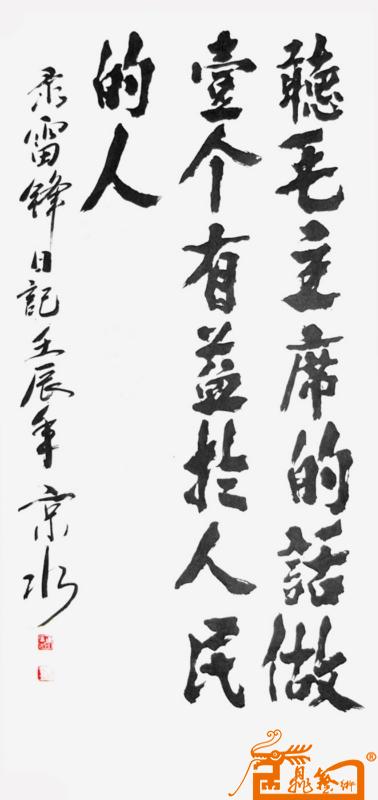 聽毛主席的話做
壹个有益於人民
的人
录雷锋日記壬辰年京水